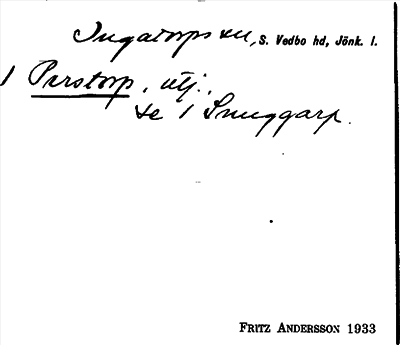 Ingatorps sn, S. Vedbo hd, Jönk. l.
1 Perstorp, utj.,
se 1 Snuggarp.
FRITZ ANDERSSON 1933